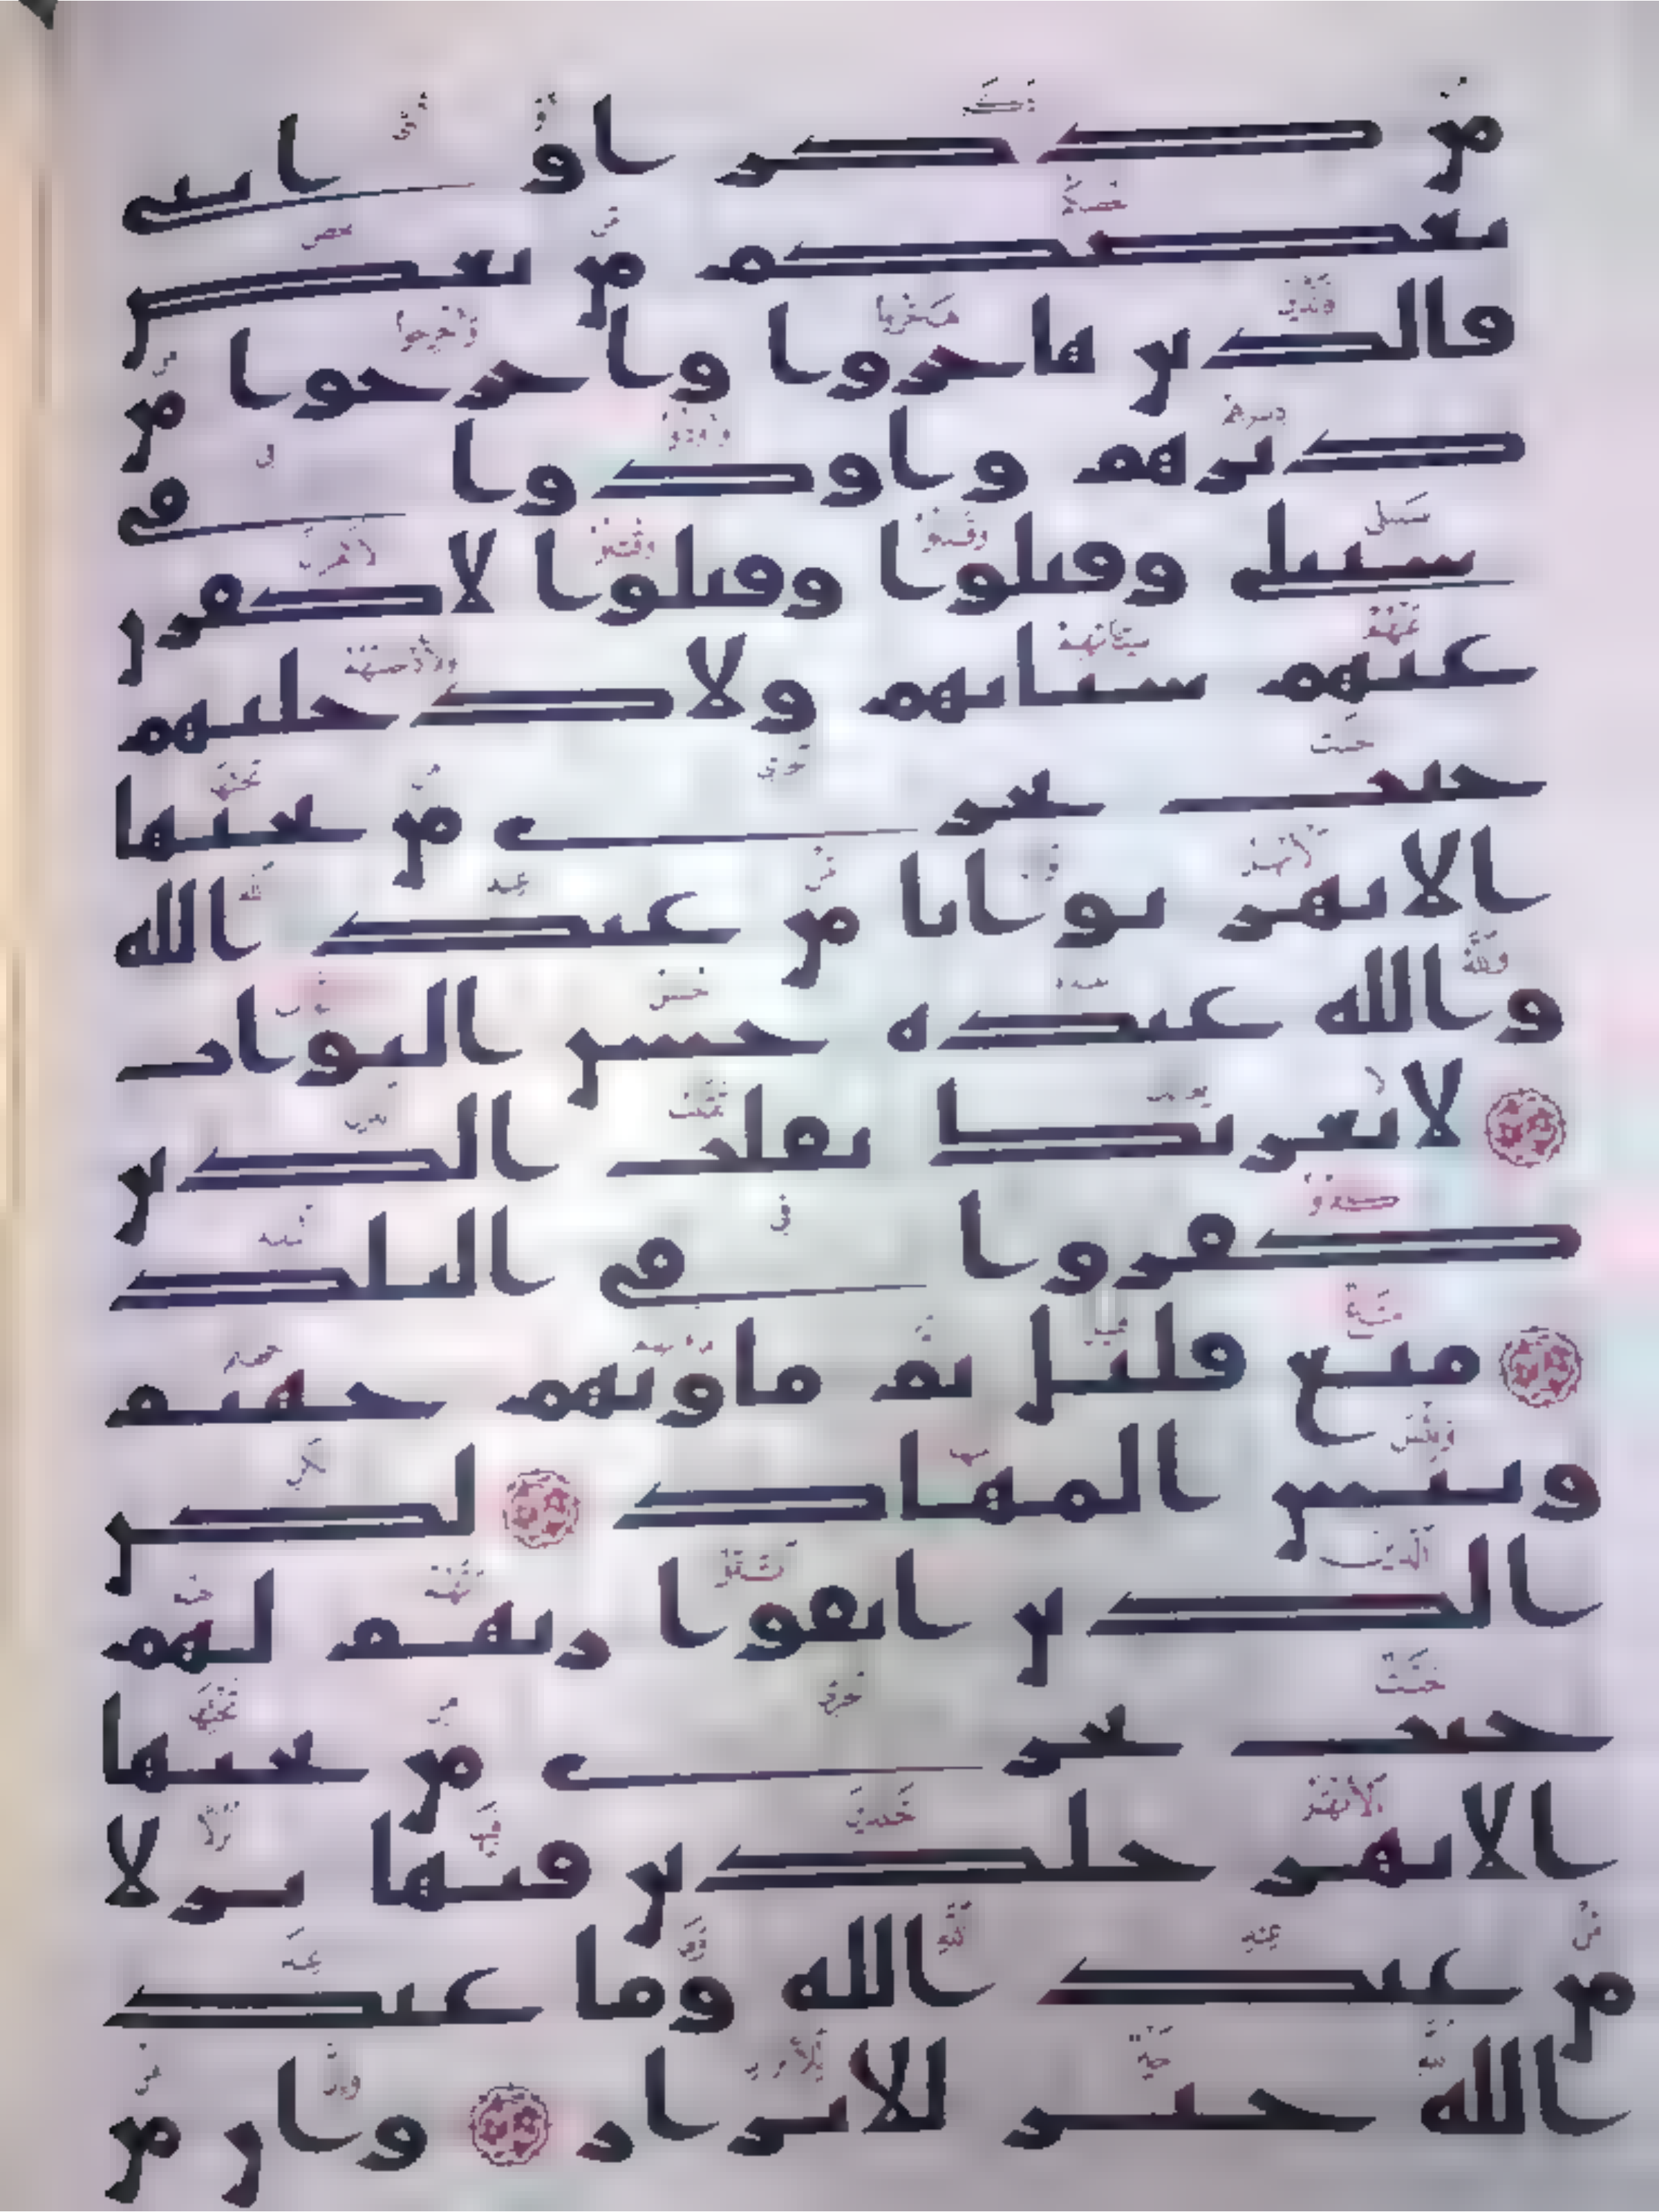 من ذكر او انثى
بعضكم من بعض
فالذين هاجروا واخرجوا من
ديرهم واوذوا في
سبيلي وقتلوا وقتلوا لاكفرن
عنهم سياتهم ولادخلنهم
جنت تجري من تحتها
الانهر ثوابا من عند الله
والله عنده حسن الثواب
لا يغرنك تقلب الذين
كفروا في البلد
متع قليل ثم ماويهم جهنم
وبئس المهاد لكن
الذين اتقوا ربهم لهم
جنت تجري من تحتها
الانهر خلدين فيها نزلا
من عند الله وما عند
الله خير للابرار وان من